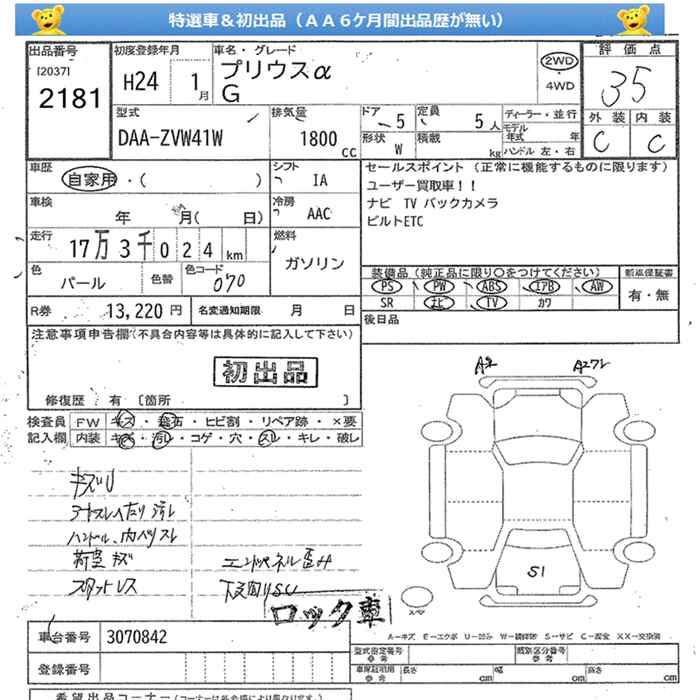 特選車＆初出品（ＡＡ６ケ月間出品歴が無い）
出品番号
[2037]
2181
初度登録年月
H24 1月
車名・グレード
プリウスα
G
2WD
・
4WD
評価点
35
外装 内装
C C
型式
DAA-ZVW41W
排気量
1800 cc
ドア 5
定員 5人
形状 W
積載 kg
ディーラー・並行
モデル年式 年
ハンドル 左・右
車歴
自家用・( )
シフト
IA
車検
年 月( 日)
冷房
AAC
走行
17万3千024km
燃料
ガソリン
色
パール
色替
色コード
070
R券 13,220円
名変通知期限 月 日
セールスポイント（正常に機能するものに限ります）
ユーザー買取車！！
ナビ TV バックカメラ
ビルトETC
装備品（純正品に限り○をつけてください）
PS PW ABS エアB AW
SR ナビ TV カワ
新車保証書
有・無
後日品
注意事項申告欄（不具合内容等は具体的に記入して下さい）
初出品
修復歴 有 〔箇所 〕
検査員記入欄
FW キズ・飛石・ヒビ割・リペア跡・×要
内装 キズ・汚レ・コゲ・穴・スレ・キレ・破レ
キズU
ハンドル、内ハリスレ
スタットレス
エンドパネル歪み
ロック車
A2
S1
A－キズ E－エクボ U－凹み W－補修跡 S－サビ C－腐食 XX－交換済
車台番号 3070842
登録番号
型式指定番号
参考
類別区分番号
参考
車庫証明用
参考
長さ cm
幅 cm
高さ cm
希望出品コーナー